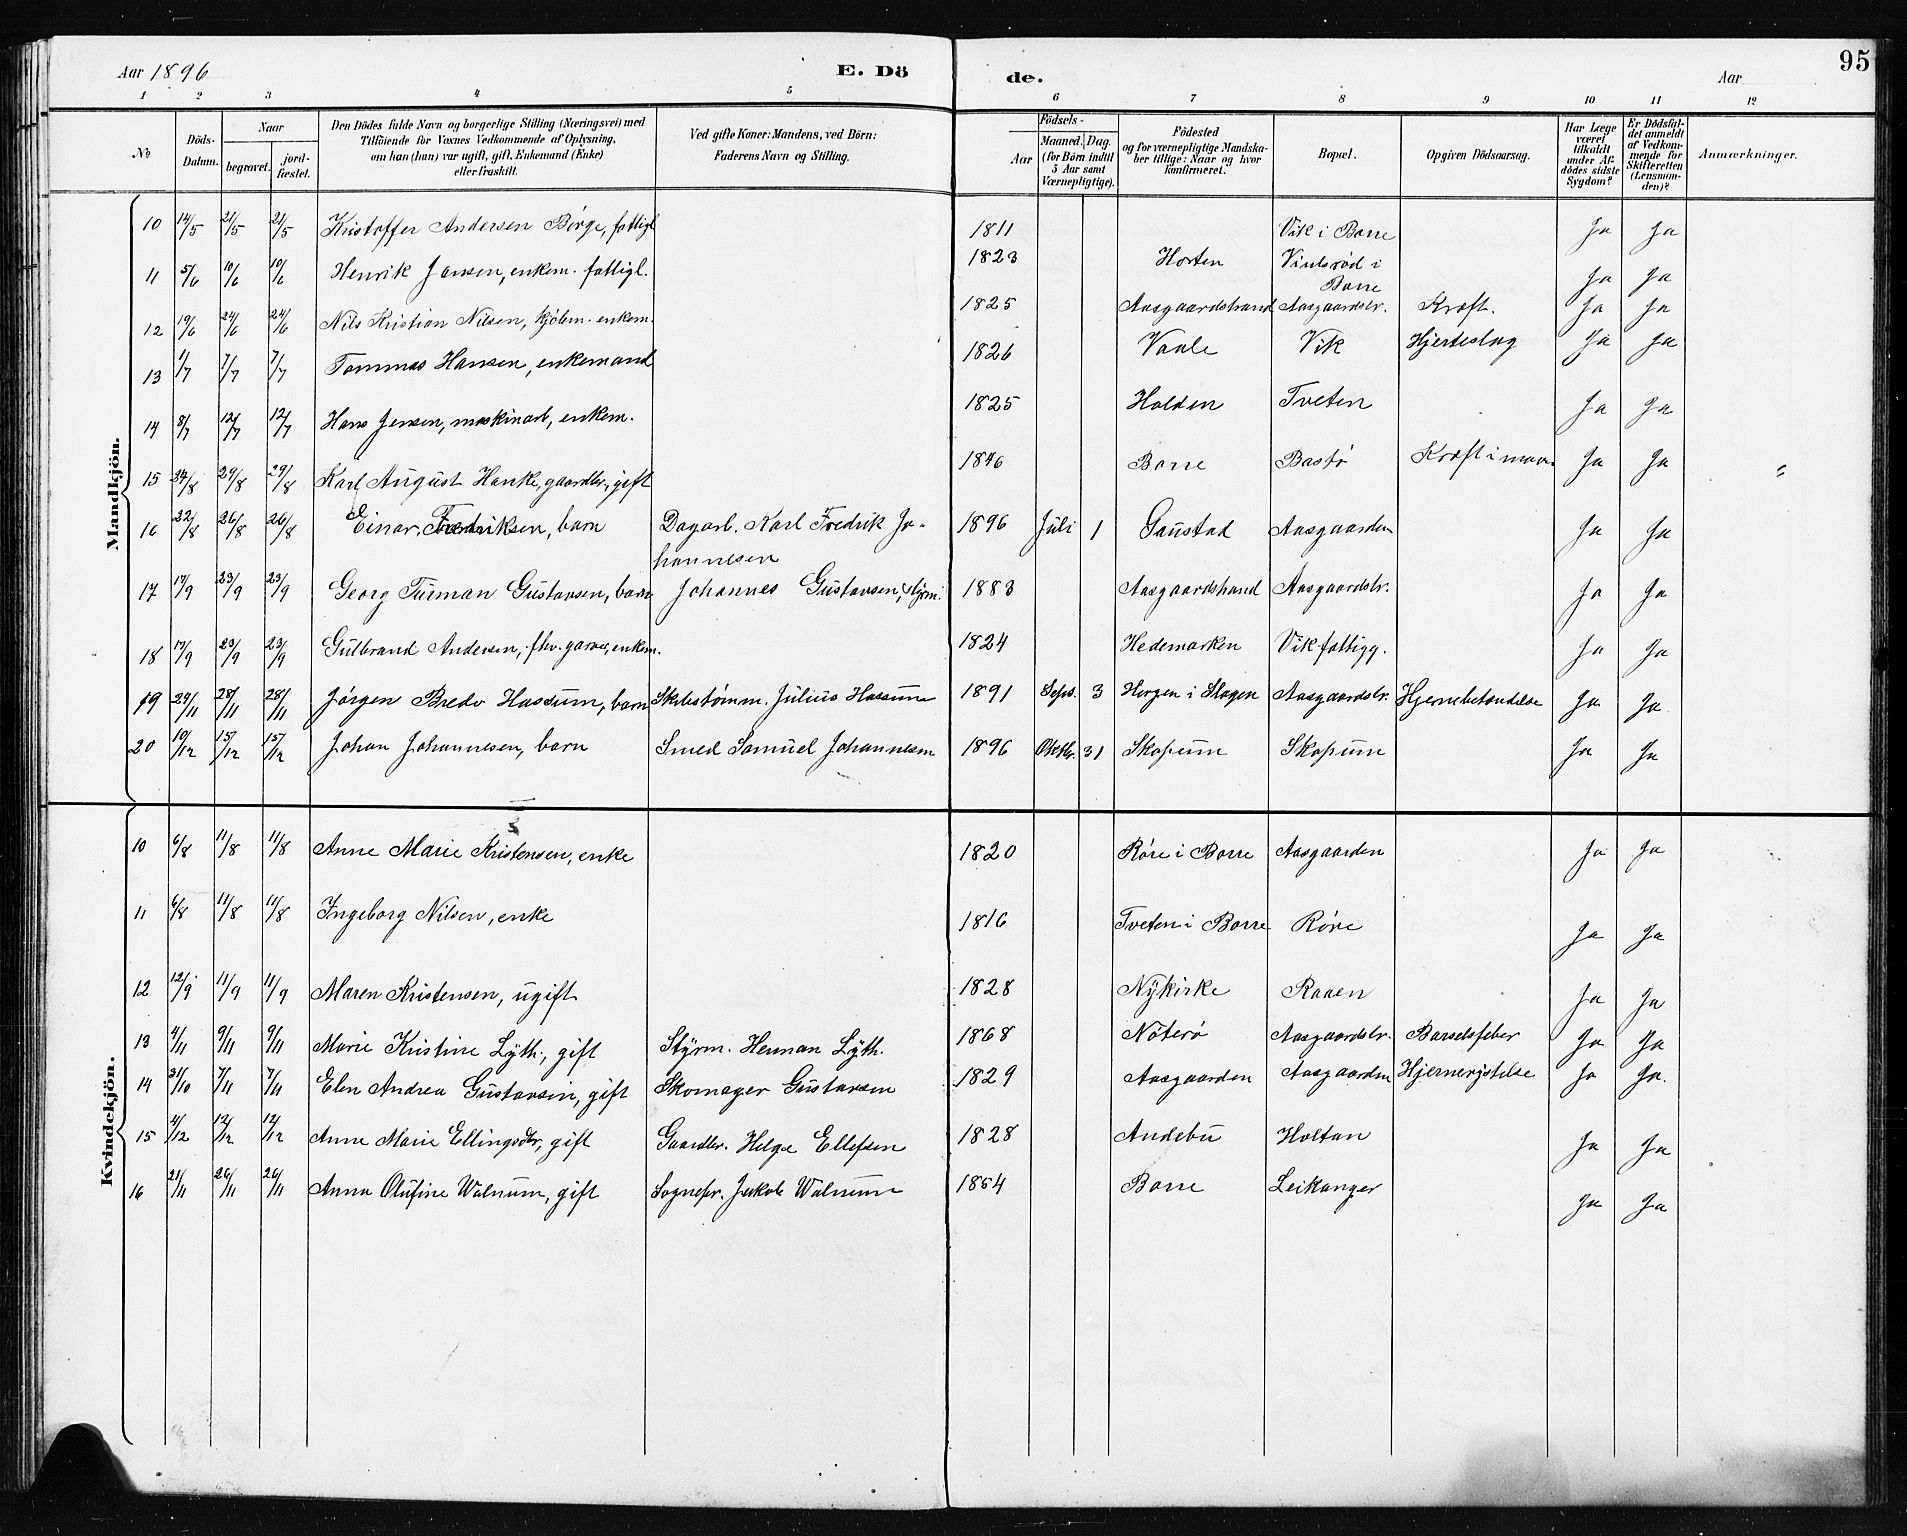 Aar 1896 E. Dö de. Aar 95
1 2 3 4 5 6 7 8 9 10 11 12
№ Döds-Datum. Naar begravet. jord-fæstet. Den Dödes fulde Navn og borgerlige Stilling (Næringsvei) med Tilföiende for Voxnes Vedkommende af Oplysning, om han (hun) var ugift, gift, Enkemand (Enke) eller fraskilt. Ved gifte Koner: Mandens, ved Börn: Faderens Navn og Stilling. Födsels- Aar Maaned. Dag. (for Börn indtil 5 Aar samt Værnepligtige). Födested og for værnepligtige Mandskaber tillige: Naar og hvor konfirmeret. Bopæl. Opgiven Dödsaarsag. Har Læge været tilkaldt under Afdödes sidste Sygdom? Er Dödsfaldet anmeldt af Vedkommende for Skifteretten (Lensmanden)? Anmærkninger.
Mandkjön.
10 14/5 21/5 21/5 Kristoffer Andersen Börge, fattigl 1811 Vik i Borre Ja Ja
11 5/6 10/6 10/6 Henrik Jansen, enkem. fattigl. 1823 Horten Vindsrød i Borre Ja Ja
12 19/6 24/6 24/6 Nils Kristian Nilsen, kjöbm. enkem. 1825 Aasgaardstrand Aasgaardstr. Kræft. Ja Ja
13 1/7 7/7 7/7 Tommas Hansen, enkemand 1826 Vaale Vik Hjerteslag Ja Ja
14 8/7 12/7 12/7 Hans Jensen, maskinarb, enkem. 1825 Holden Tveten Ja Ja
15 24/8 29/8 29/8 Karl August Hanke, gaardbr., gift 1846 Borre Bastø Kræft i mave Ja Ja "
16 22/8 26/8 26/8 Einar, Fredriksen, barn Dagarb. Karl Fredrik Johannesen 1896 Juli 1 Gaustad Aasgaarden Ja Ja
17 17/9 23/9 23/9 Georg Turman Gustavsen, barn Johannes Gustavsen, styrm. 1883 Aasgaardstrand Aasgaardstr. Ja Ja
18 17/9 23/9 23/9 Gulbrand Andersen, fhv. garver, enkem. 1824 Hedemarken Vik fattigg. Ja Ja
19 24/11 28/11 28/11 Jørgen Bredo Hassum, barn Skibstømm. Julius Hassum 1891 Sept. 3 Horgen i Slagen Aasgaardstr. Hjernebetændelse Ja Ja
20 10/12 15/12 15/12 Johan Johannesen, barn Smed Samuel Johannesen 1896 Oktbr. 31 Skopum Skopum Ja Ja
Kvindekjön.
10 6/8 11/8 11/8 Anne Marie Kristensen, enke 1820 Røre i Borre Aasgaarden Ja Ja
11 6/8 11/8 11/8 Ingeborg Nilsen, enke 1816 Tveten i Borre Røre Ja Ja
12 12/9 11/9 11/9 Maren Kristensen, ugift 1828 Nykirke Raaen Ja Ja
13 4/11 9/11 9/11 Marie Kristine Lyth., gift Styrm. Herman Lyth. 1868 Nöterö Aasgaardstr. Barselsfeber Ja Ja
14 31/10 7/11 7/11 Elen Andrea Gustavsen, gift Skomager Gustavsen 1829 Aasgaarden Aasgaarden Hjernerystelse Ja Ja.
15 4/12 12/12 12/12 Anne Marie Ellingsdtr, gift Gaardbr. Helge Ellefsen 1828 Andebu Holtan Ja Ja
16 21/11 26/11 26/11 Anna Olufine Walnum, gift Sognepr. Jakob Walnum 1854 Borre Leikanger Ja Ja